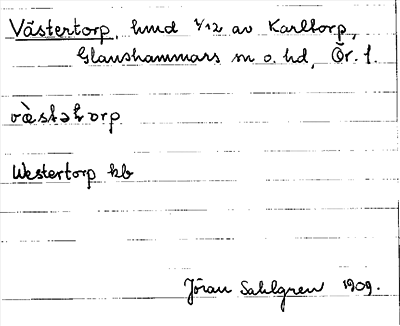 Västertorp, hmd 1/12 av Karltorp,
Glanshammars sn o. hd, Ör. l.
væ̀stətorp
Westertorp kb
Jöran Sahlgren 1909.